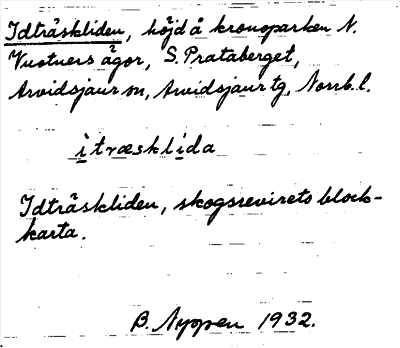 Idträskliden, höjd å kronoparken N.
Vuotners ägor, S. Prataberget,
Arvidsjaur sn, Arvidsjaur tg, Norrb. l.
itræsklida
Idträskliden, skogsrevirets block-
karta.
B. Nyppen 1932.